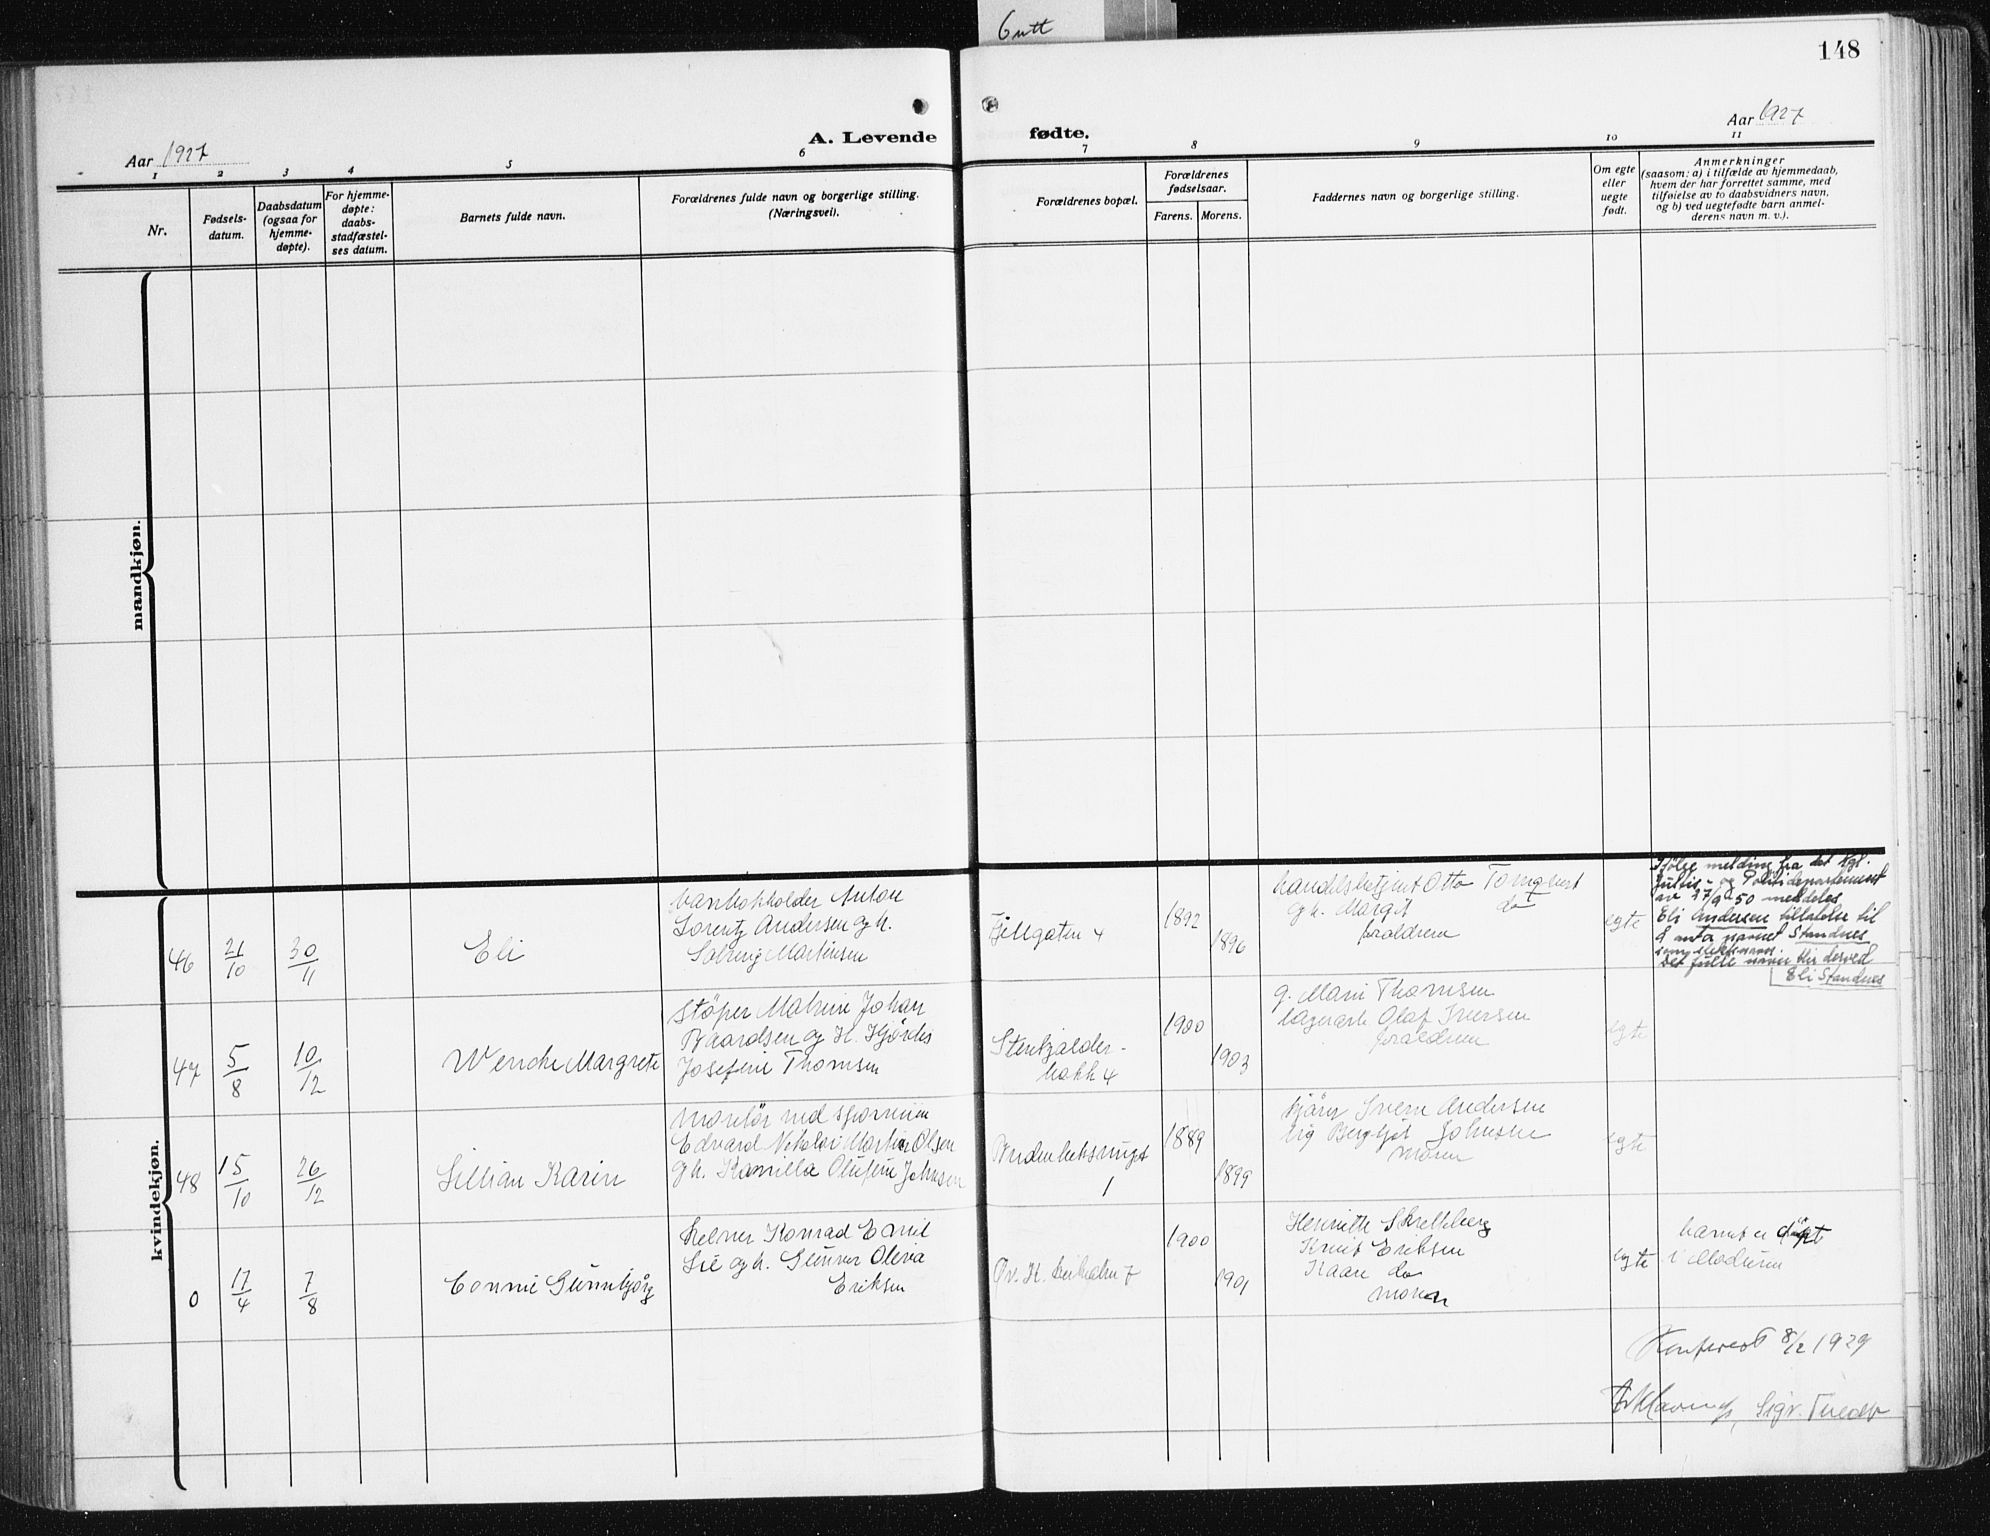 Gutt
148
A. Levende fødte.
Aar 1927
Aar 1927
1 2 3 4 5 6 7 8 9 10 11
Nr.
Fødsels-
datum.
Daabsdatum
(ogsaa for
hjemme-
døpte).
For hjemme-
døpte:
daabs-
stadfæstel-
ses datum.
Barnets fulde navn.
Forældrenes fulde navn og borgerlige stilling.
(Næringsvei).
Forældrenes bopæl.
Forældrenes
fødselsaar.
Farens. Morens.
Faddernes navn og borgerlige stilling.
Om egte
eller
uegte
født.
Anmerkninger
(saasom: a) i tilfælde av hjemmedaab,
hvem der har forrettet samme, med
tilføielse av to daabsvidners navn,
og b) ved uegtefødte barn anmel-
derens navn m. v.).
mandkjøn.
kvindekjøn.
46 21/10 30/11 Eli
Anton
Lorentz Andersen og h.
Solveig Martinsen
Fjellgaten 4
1892
1896
handelsbetjent Otto
og h. Margit do
foreldrene
egte
Ifølge melding fra det kgl.
Justis- og Politidepartement
av 27/9 50 meddeles
Eli Andersen tillatelse til
å anta navnet Standnes
som slektsnavn.
Det fulle navn blir derved
Eli Standnes
47 5/8 10/12 Wenche Margrete
Støper Johan
Baardsen og H. Hjørdis
Josefine Thomsen
Stenkjelder-
bakk 4
1900
1903
g. Marie Thomsen
lagerarb Olaf Iversen
foreldrene
egte
48 15/10 26/12 Lillian Karin
ved
Edvard Nikolai Martin Olsen
og h. Kamilla Olufine Johnsen
1
1889
1899
Svein Andersen
Bergljot Johnsen
moren
egte
0 17/4 7/8 Connie Gunnbjørg
Kelner Konrad Emil
Lie og h. Gunvor Olevia
Eriksen
7
1900
1901
Knut Eriksen
Kaare do
moren
egte
barnet er døpt
i Modum
Konferert 8/2 1929